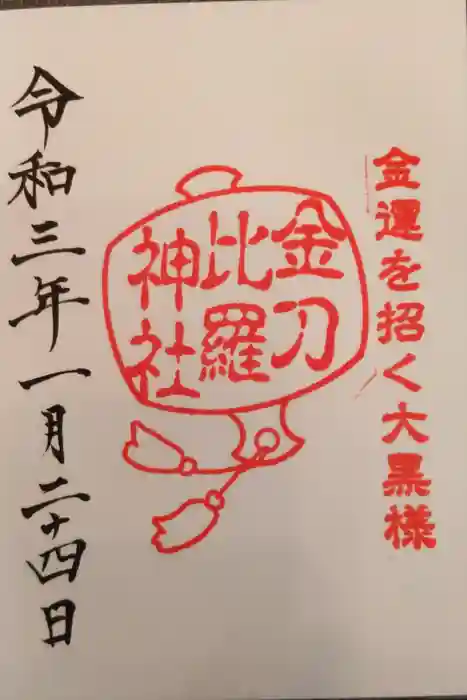 金運を招く大黒様
金刀
比羅
神社
令和三年一月二十四日